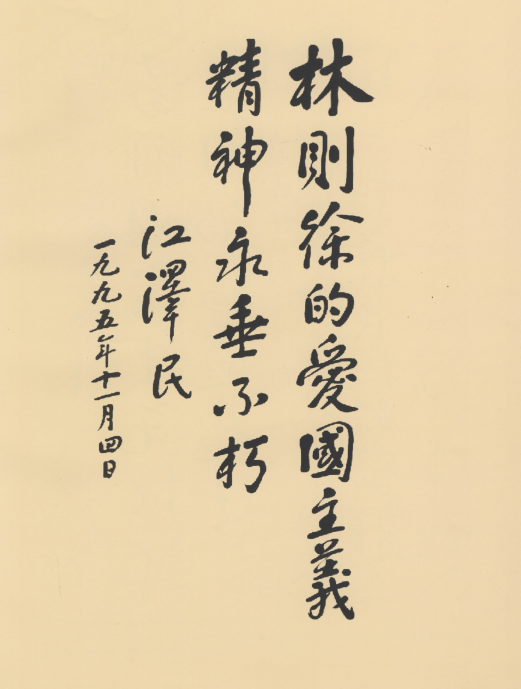 林則徐的愛國主義
精神永垂不朽
江澤民
一九九五年十一月四日